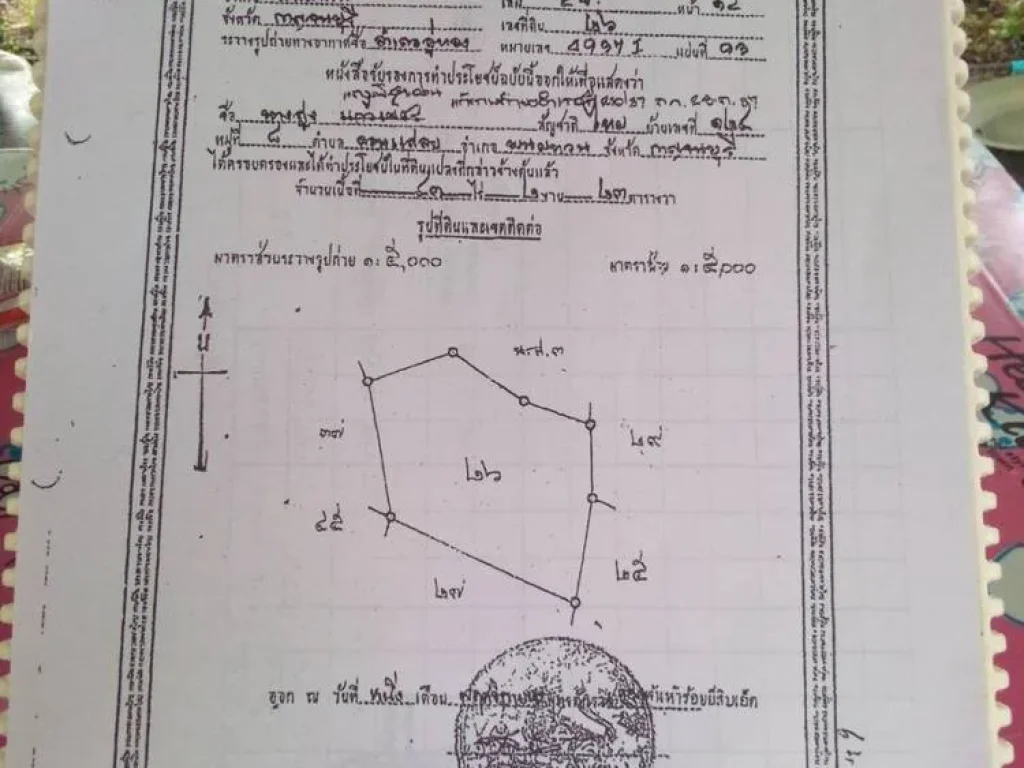 หน้า ๑๔
จังหวัด กาญจนบุรี เลขที่ดิน ๒๖
ระวางรูปถ่ายทางอากาศชื่อ อำเภออู่ทอง หมายเลข 4937 I แผ่นที่ 93
หนังสือรับรองการทำประโยชน์ฉบับนี้ออกให้เพื่อแสดงว่า
ชื่อ สัญชาติ ไทย บ้านเลขที่ ๑๒๔
หมู่ที่ ๘ ตำบล ดอนแสลบ อำเภอ พนมทวน จังหวัด กาญจนบุรี
ได้ครอบครองและได้ทำประโยชน์ในที่ดินแปลงที่กล่าวข้างต้นแล้ว
จำนวนเนื้อที่ ๔๓ ไร่ ๒ งาน ๒๓ ตารางวา
รูปที่ดินและเขตติดต่อ
มาตราส่วนระวางรูปถ่าย ๑: ๕,๐๐๐ มาตราส่วน ๑: ๕,๐๐๐
น
น.ส.๓
๓๗
๒๙
๒๖
๔๕
๒๕
๒๗
ออก ณ วันที่ หนึ่ง เดือน พฤศจิกายน พันห้าร้อยยี่สิบเอ็ด